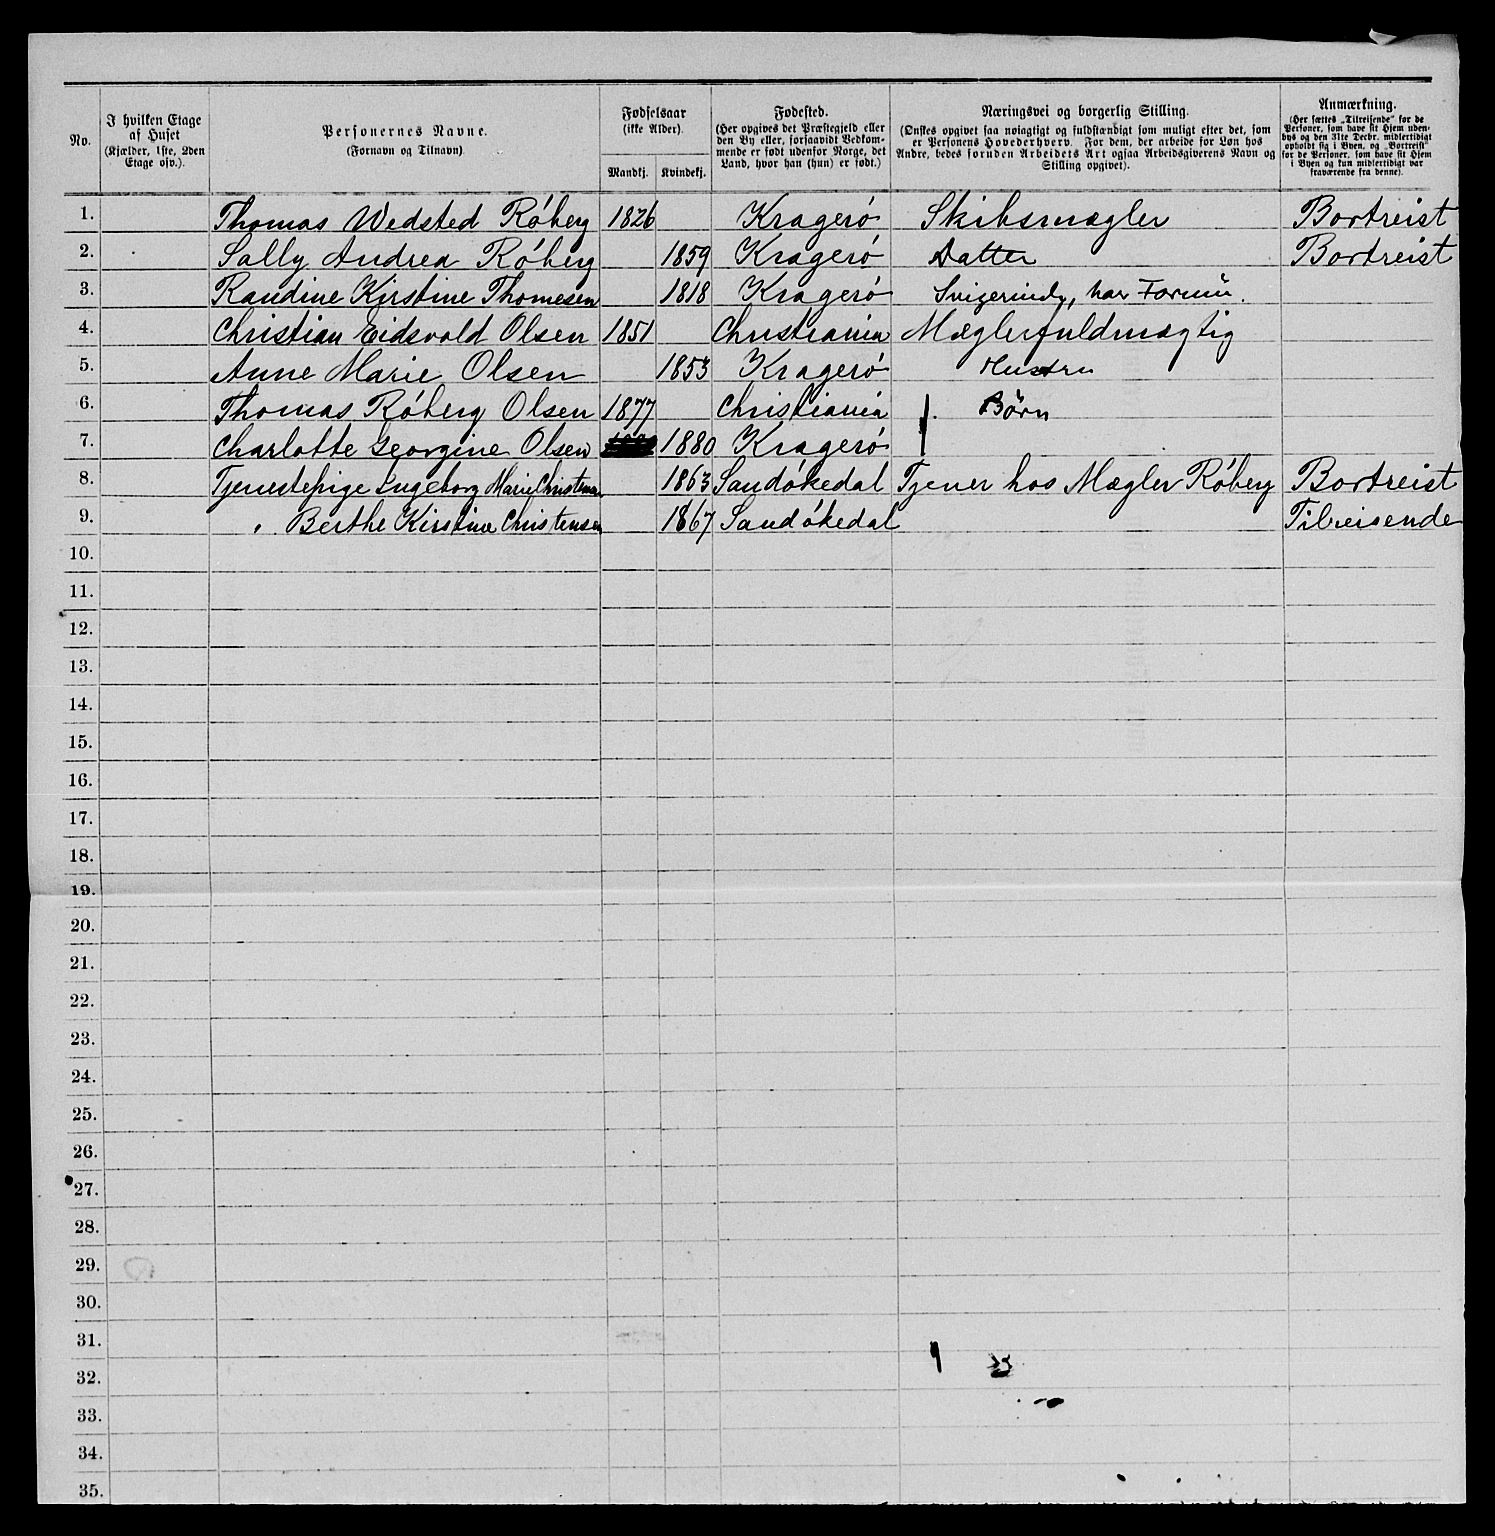 No.
I hvilken Etage af Huset (Kjælder, 1ste, 2den Etage osv.).
Personernes Navne. (Fornavn og Tilnavn)
Fødselsaar (ikke Alder).
Mandkj. Kvindekj.
Fødested. (Her opgives det Præstegjeld eller den By eller, forsaavidt Vedkommende er født udenfor Norge, det Land, hvor han (hun) er født.)
Næringsvei og borgerlig Stilling. (Ønskes opgivet saa nøiagtigt og fuldstændigt som muligt efter det, som er Personens Hovederhverv. For dem, der arbeide for Løn hos Andre, bedes foruden Arbeidets Art ogsaa Arbeidsgiverens Navn og Stilling opgivet).
Anmærkning. (Her sættes „Tilreisende" for de Personer, som have sit Hjem udenbys og den 31te Decbr. midlertidigt opholdt sig i Byen, og „Bortreist" for de Personer, som have sit Hjem i Byen og kun midlertidigt var fraværende fra denne).
1. Thomas Wedsted Röberg 1826 Kragerö Skibsmægler Bortreist
2. Sally Andrea Röberg 1859 Kragerö Datter Bortreist
3. Randine Kirstine Thomesen 1818 Kragerö Svigerinde, har Formü.
4. Christian Eidsvold Olsen 1851 Christiania Mæglerfuldmægtig
5. Anne Marie Olsen 1853 Kragerö Hustru
6. Thomas Röberg Olsen 1877 Christiania Børn
7. Charlotte Georgine Olsen 1880 Kragerö
8. Tjenestepige Ingeborg Marie Christensen 1863 Sandökedal Tjener hos Mægler Röberg Bortreist
9. " Berthe Kirstine Christensen 1867 Sandökedal Tilreisende
10.
11.
12.
13.
14.
15.
16.
17.
18.
19.
20.
21.
22.
23.
24.
25.
26.
27.
28.
29.
30.
31.
32.
33.
34.
35.